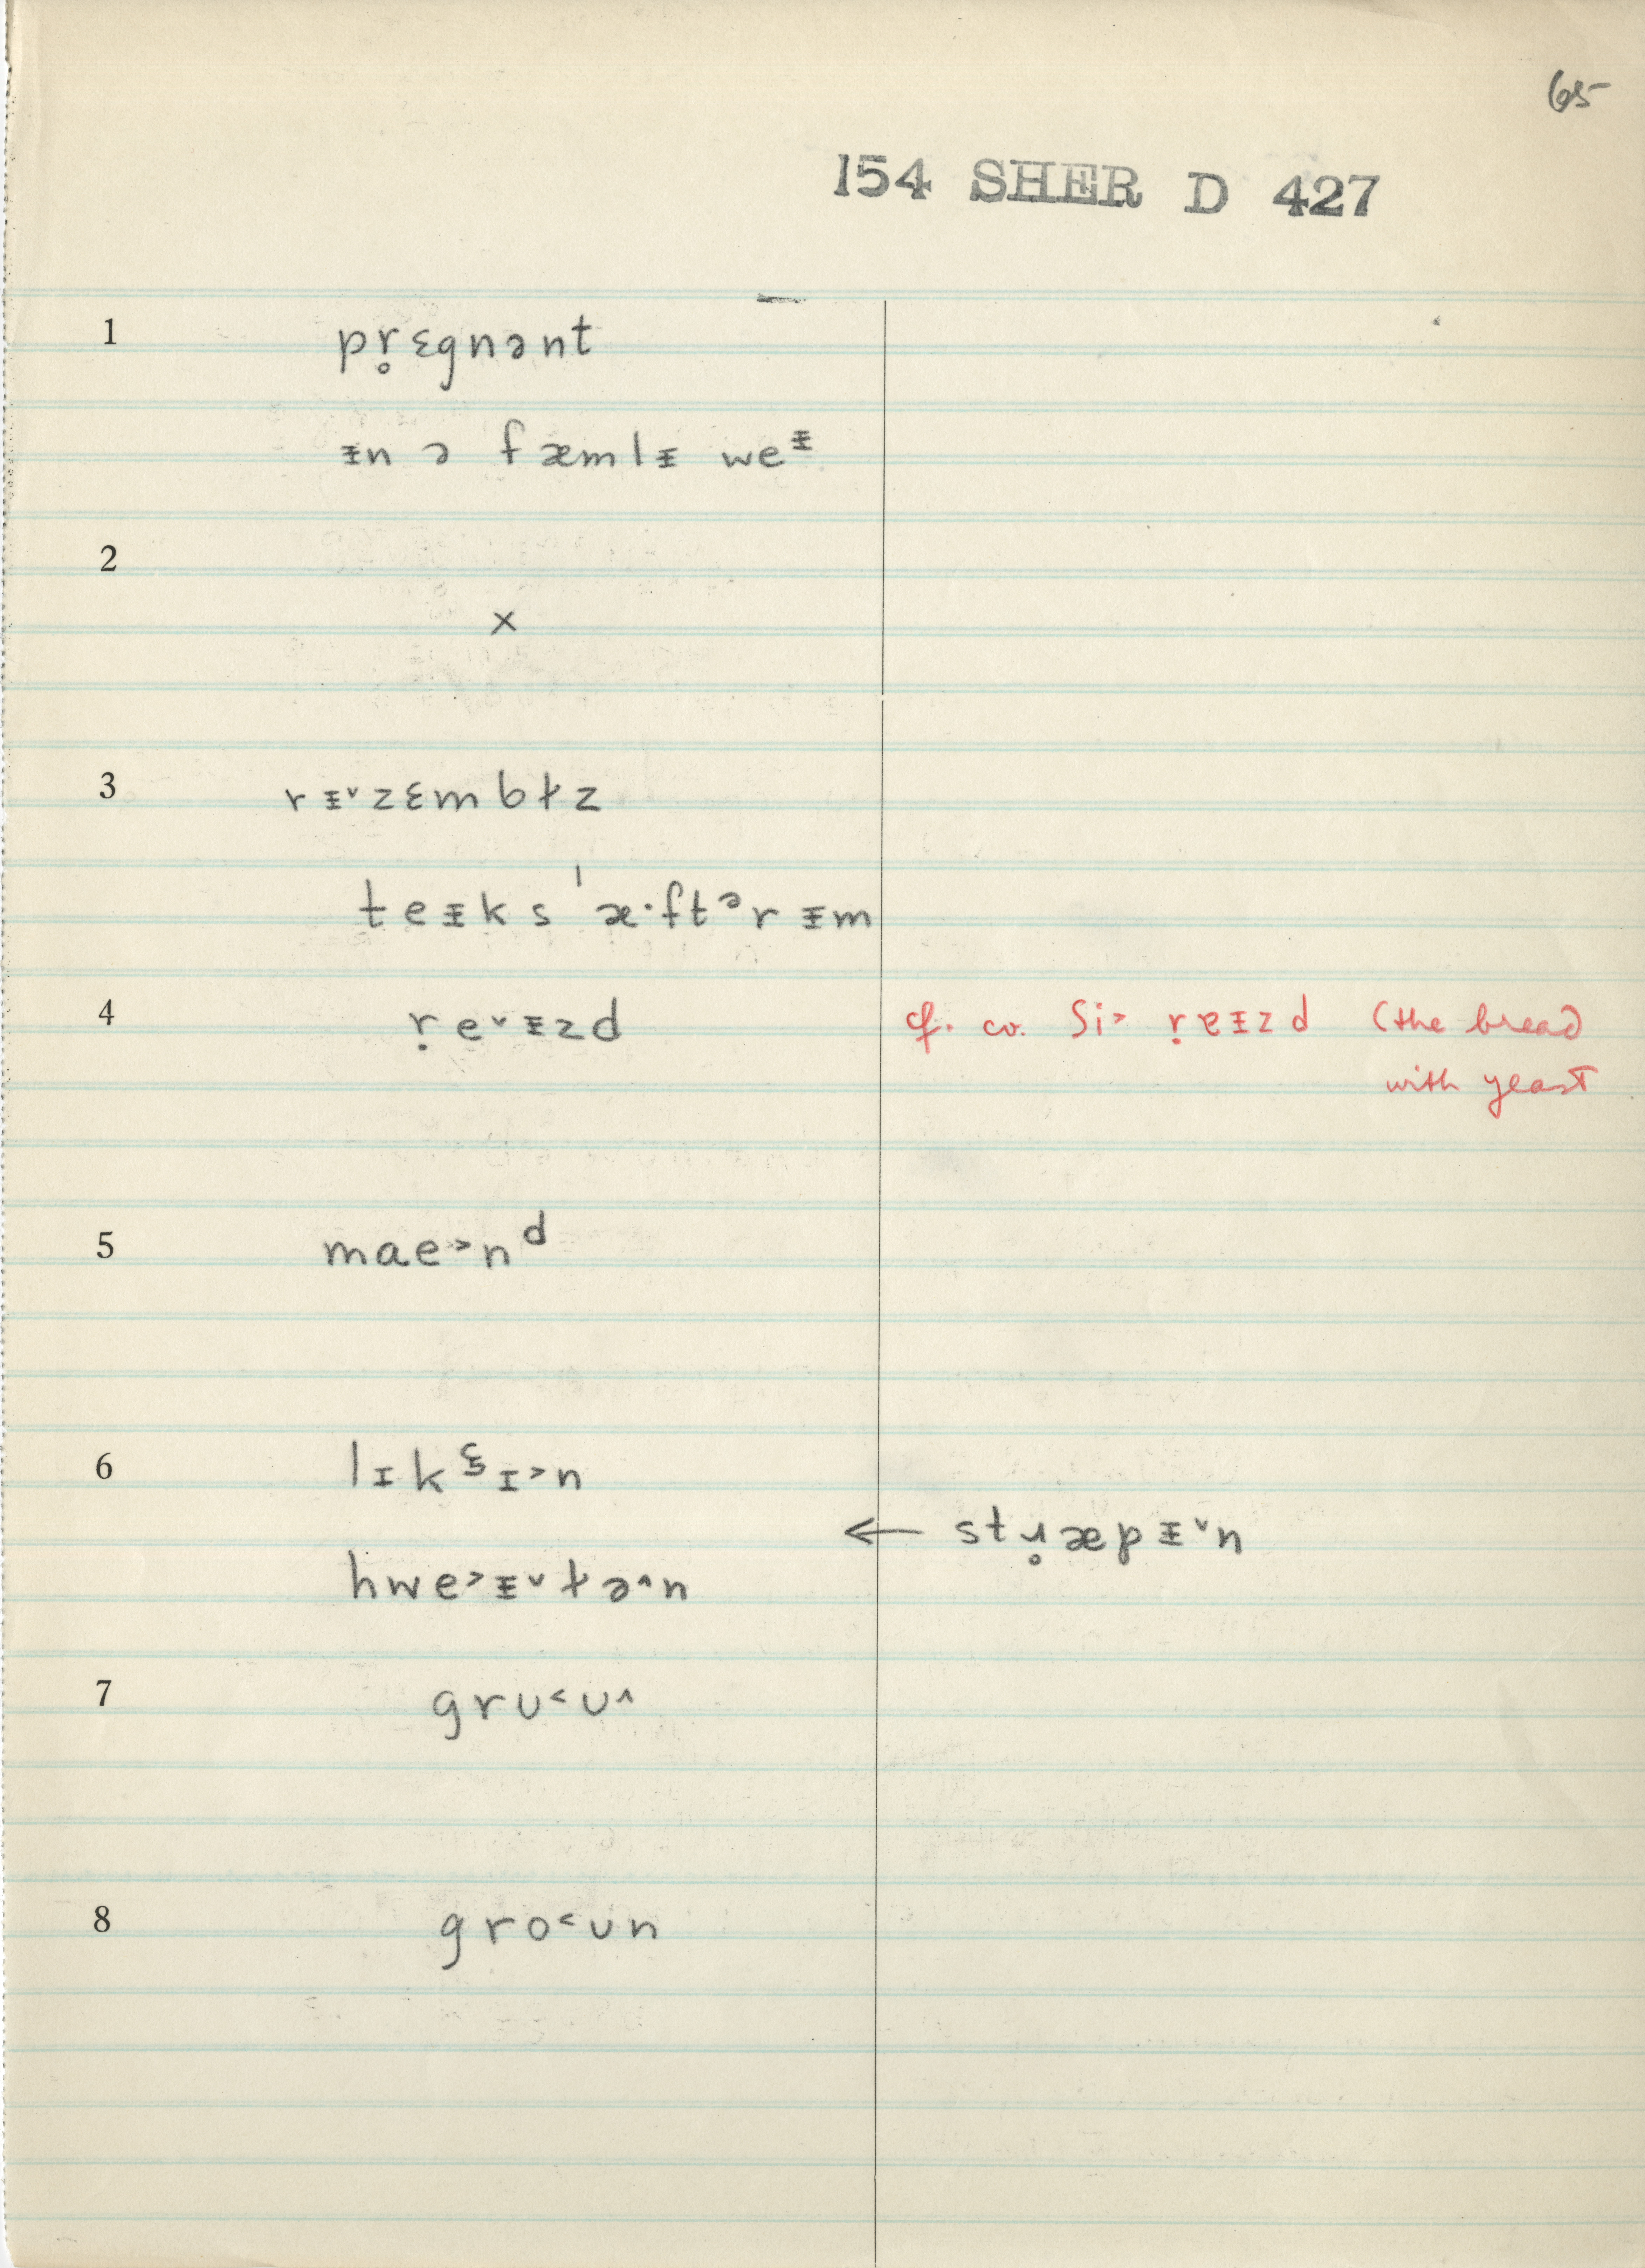 65
154 SHER D 427
1 pr̥ɛgnənt
ᵻn ə fæmlᵻ weᵻ
2
x
3 rᵻ˅zɛmbɫz
teᵻks ˈæ·ftᵊrᵻm
4 ṛe˅ᵻzd cf. co. Si˃ ṛɐᵻzd (the bread
with yeast
5 mae˃nᵈ
6 lɪk ɪ˃n
← stɹ̥æpᵻ˅n
hwe˃ᵻ˅ɫə˄n
7 grʊ˂ʊ˄
8 gro˂ʊn